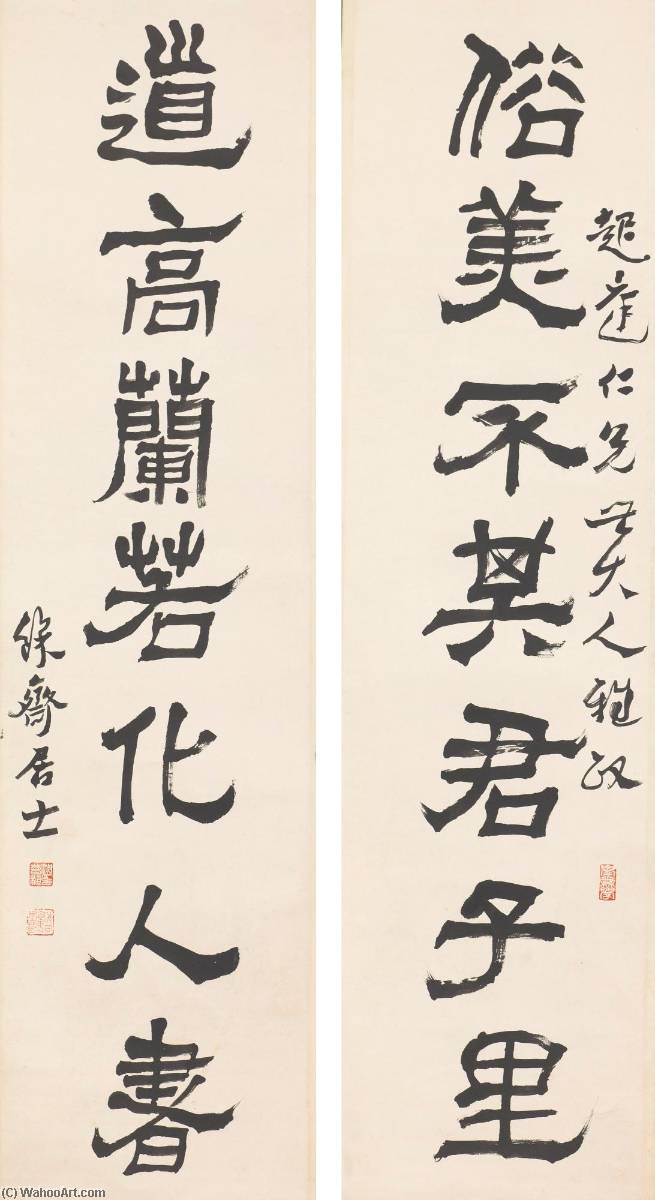 超仁兄世大人雅政
俗美不其君子里
道高蘭若化人書
齋居士
(C) WahooArt.com